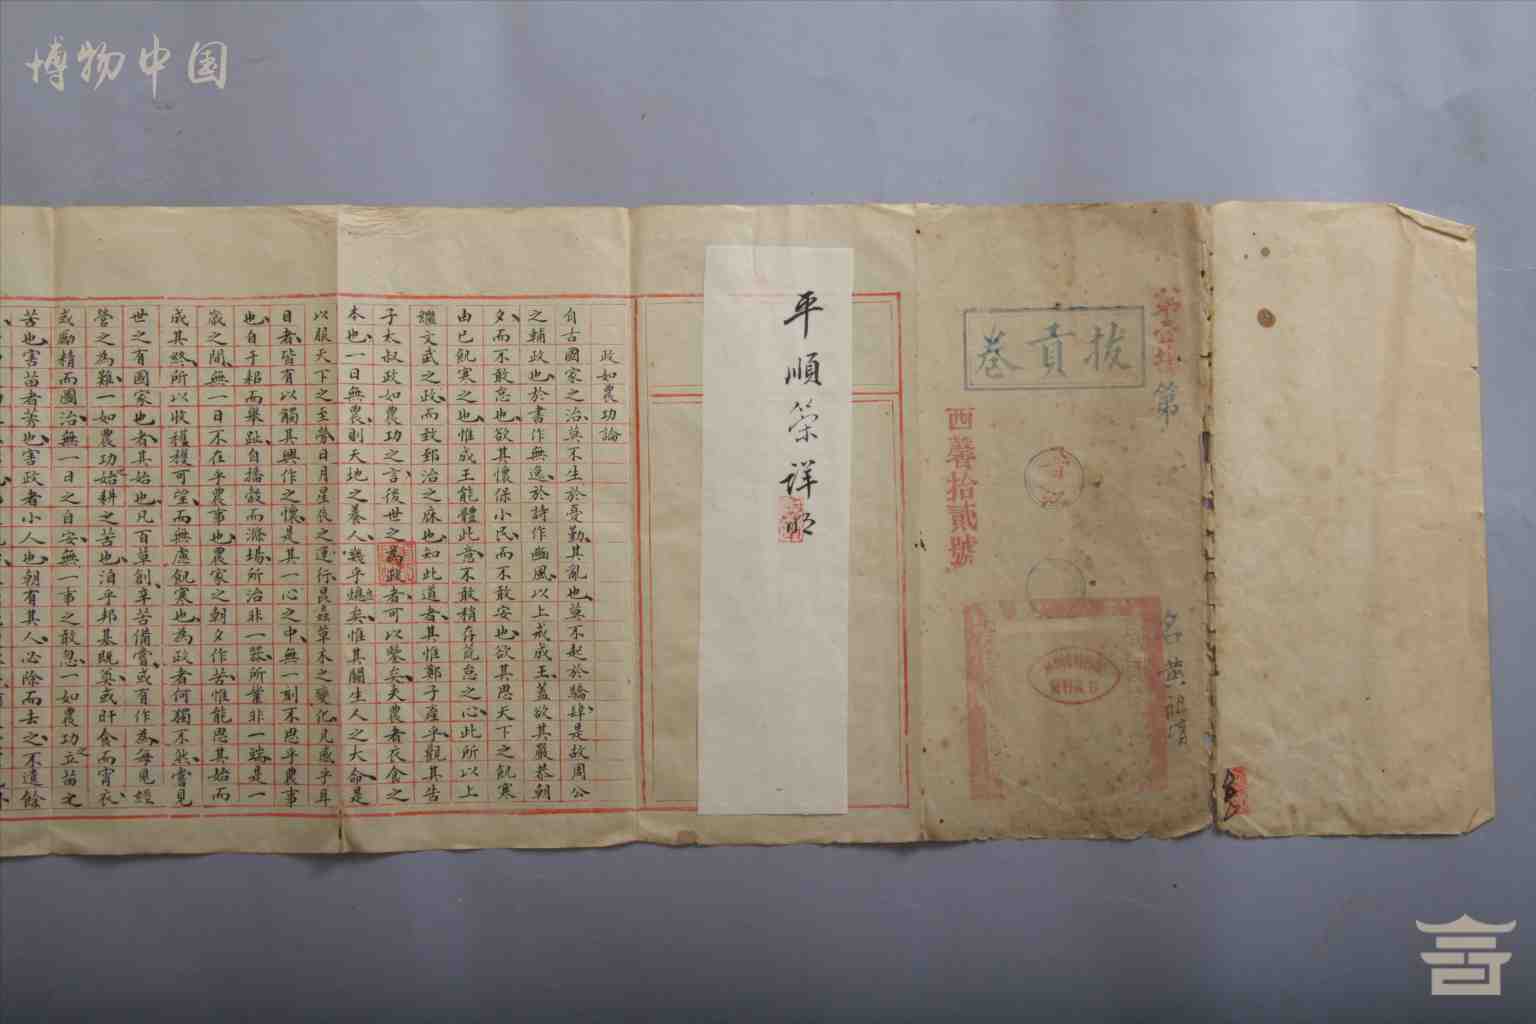 博物中国
拔貢卷
第
第
西馨拾貳號
名
平順榮詳
政如農功論
自古國家之治莫不生於憂勤其亂也莫不起於驕肆是故周公
之輔政也於書作無逸於詩作豳風以上戒成王蓋欲其嚴恭朝
夕而不敢怠也欲其懷保小民而不敢安也欲其思天下之飢寒
由己飢寒之也惟成王能體此意不敢稍存荒怠之心此所以上
繼文武之政而致郅治之庥也知此道者其惟鄭子產乎觀其告
子太叔政如農功之言後世之為政者可以鑒矣夫農者衣食之
本也一日無農則天地之養人幾乎熄矣惟其關生人之大命是
以服天下之至勞日月星辰之運行昆蟲草木之變化凡感乎耳
目者皆有以觸其興作之懷是其一心之中無一刻不思乎農事
也自于耜而舉趾自播穀而滌場所治非一器所業非一端是一
歲之間無一日不在乎農事也農家之朝夕作苦惟能思其始而
成其終所以收穫穫可望而無慮飢寒也為政者何獨不然嘗見
世之有國家也者其始也凡百草創辛苦備嘗或有作為每見經
營之為難一如農功始耕之苦也洎乎邦基既奠或旰食而宵衣
或勵精而圖治無一日之自安無一事之敢忽一如農功立苗之
苦也害苗者莠也害政者小人也朝有其人必除而去之不遺餘